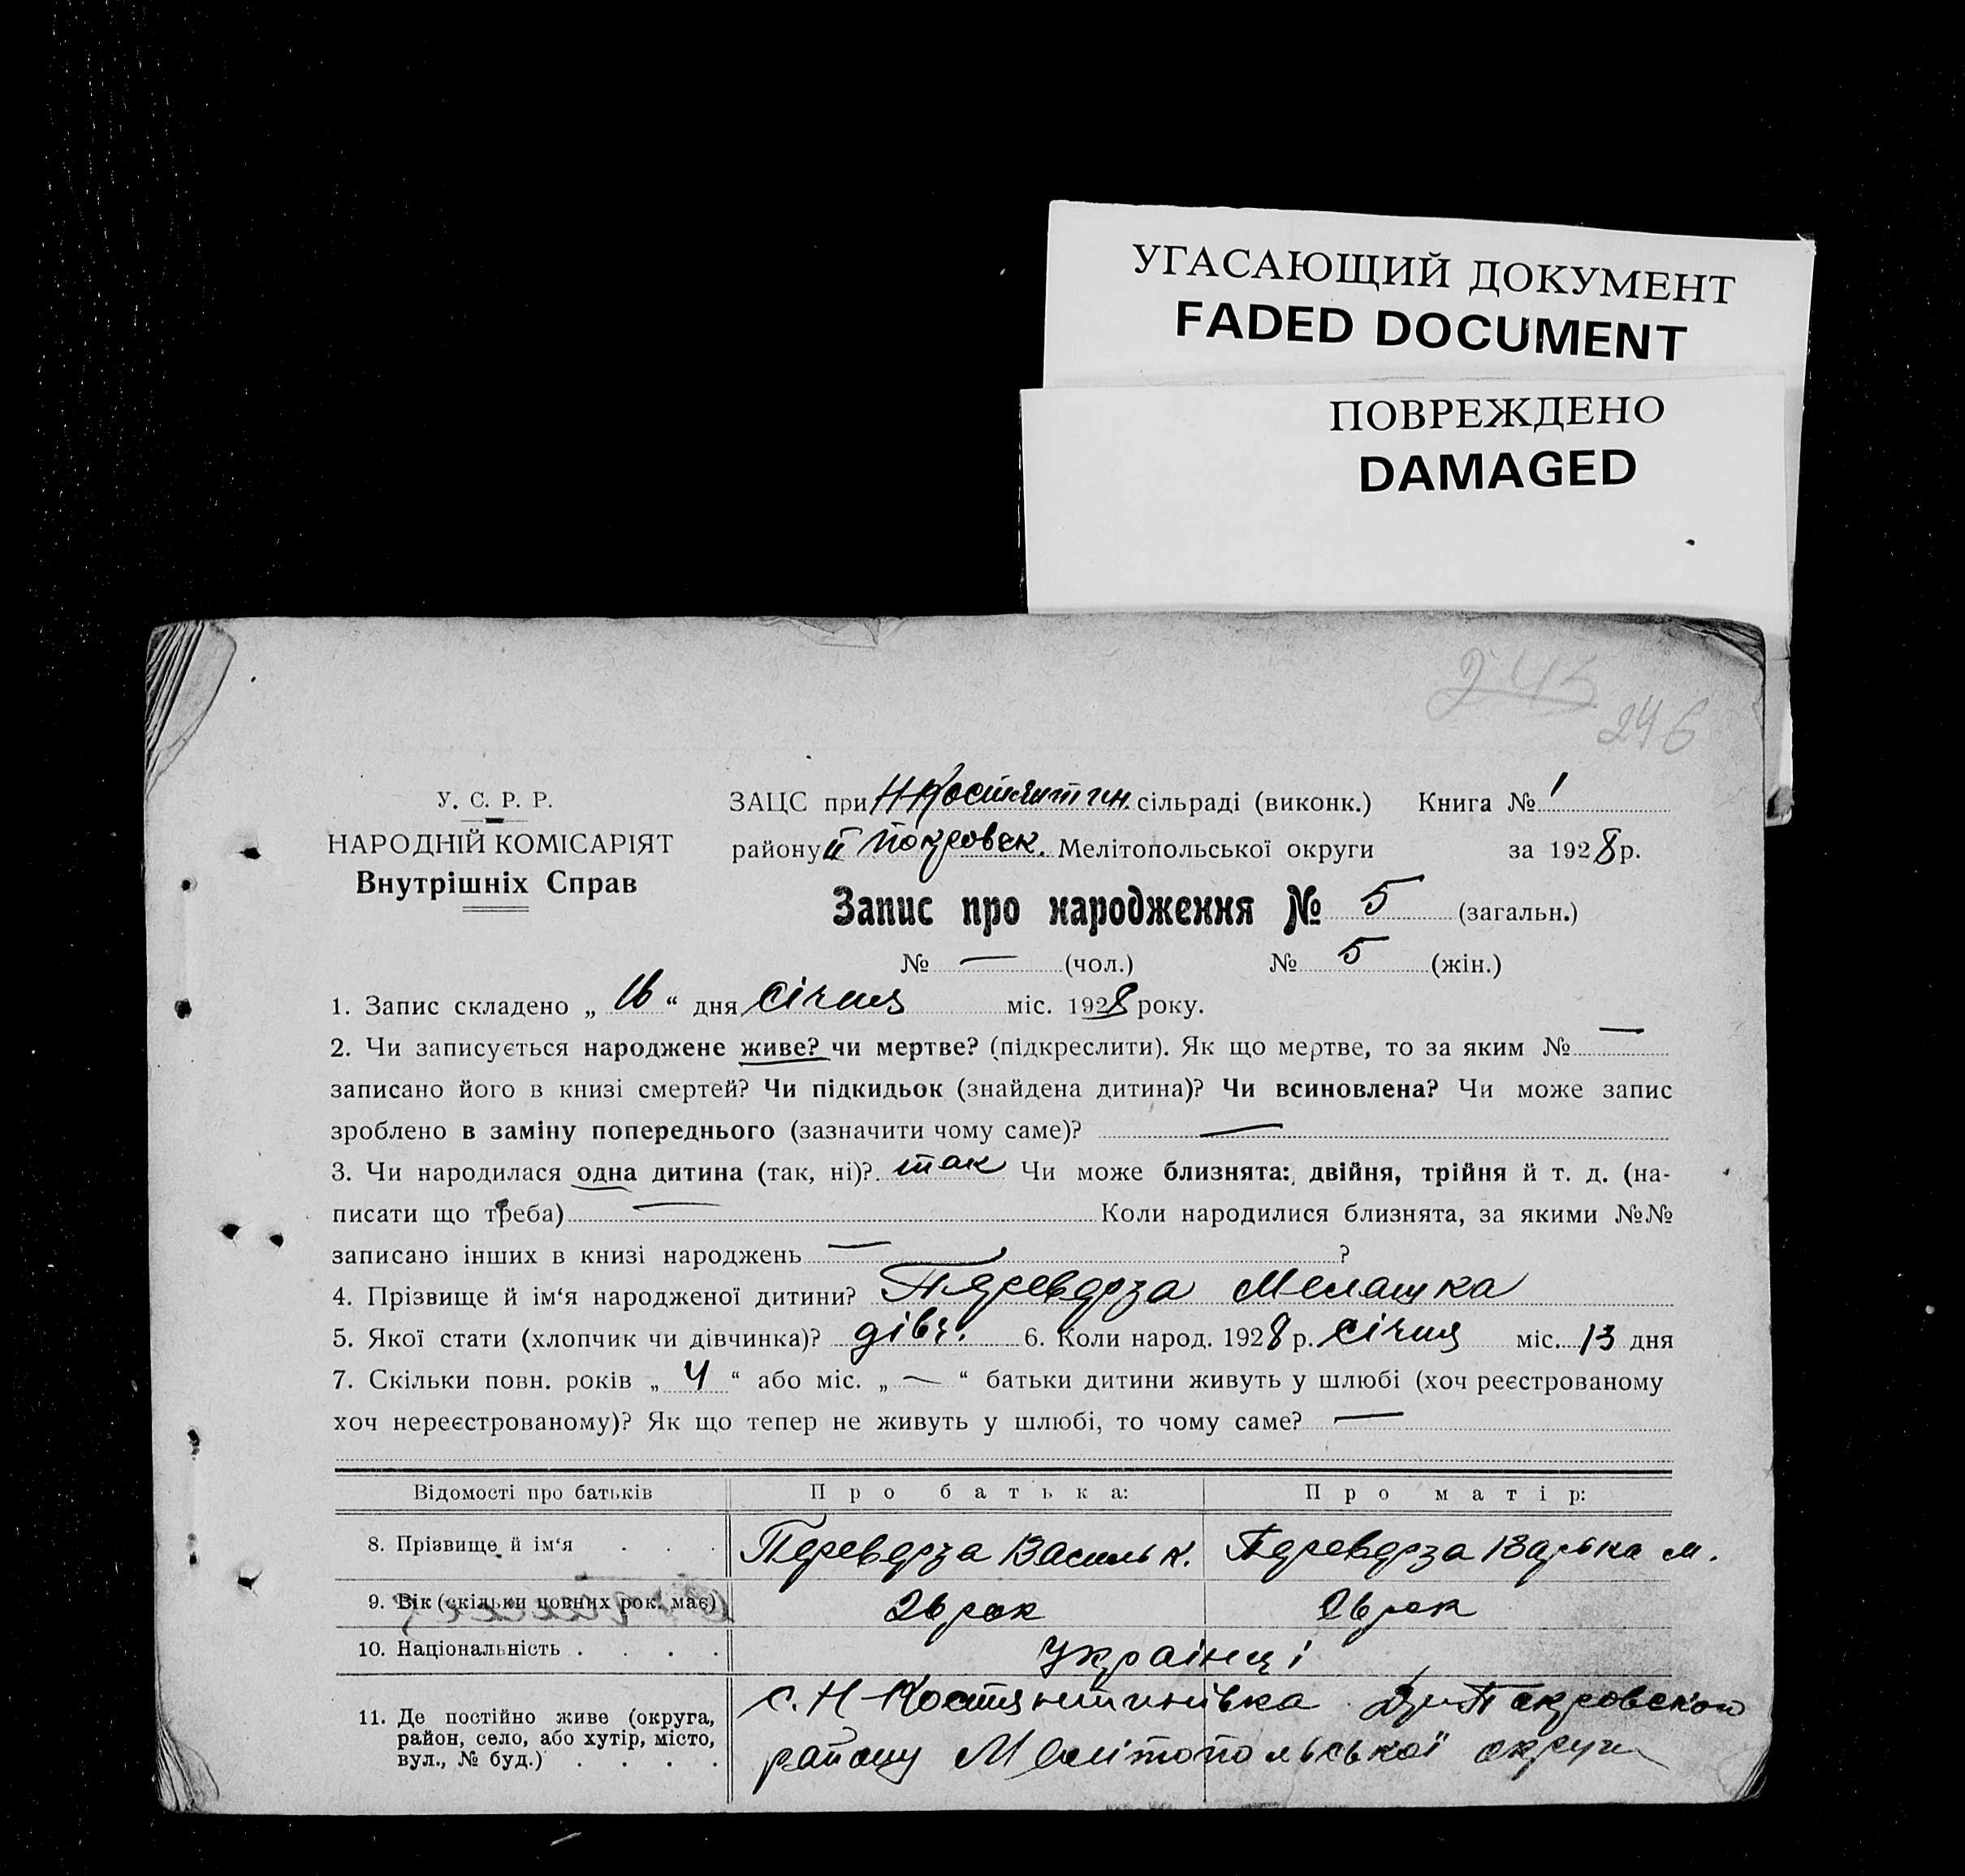 УГАСАЮЩИЙ ДОКУМЕНТ
FADED DOCUMENT
ПОВРЕЖДЕНО
DAMAGED
246
У. С. Р. Р.
НАРОДНІЙ КОМІСАРІЯТ
Внутрішніх Справ
ЗАЦС при Н Костянтин. сільраді (виконк.) Книга № 1
району Покровск. Мелітопольської округи за 1928 р.
Запис про народження № 5 (загальн.)
№ — (чол.) № 5 (жін.)
1. Запис складено „ 16 “ дня січня міс. 1928 року.
2. Чи записується народжене живе? чи мертве? (підкреслити). Як що мертве, то за яким № —
записано його в книзі смертей? Чи підкидьок (знайдена дитина)? Чи всиновлена? Чи може запис
зроблено в заміну попереднього (зазначити чому саме)? —
3. Чи народилася одна дитина (так, ні)? так Чи може близнята: двійня, трійня й т. д. (на-
писати що треба) — Коли народилися близнята, за якими №№
записано інших в книзі народжень — ?
4. Прізвище й ім‘я народженої дитини? Переверза Мелашка
5. Якої стати (хлопчик чи дівчинка)? дівч. 6. Коли народ. 1928 р. січня міс. 13 дня
7. Скільки повн. років „ 4 “ або міс. „ — “ батьки дитини живуть у шлюбі (хоч реєстрованому
хоч нереєстрованому)? Як що тепер не живуть у шлюбі, то чому саме? —
Відомості про батьків Про батька: Про матір:
8. Прізвище й ім‘я . . . Переверза Василь К. Переверза Варька М.
9. Вік (скільки повних рок. має) 26 рок 26 рок
10. Національність . . . . Українці
11. Де постійно живе (округа,
район, село, або хутір, місто,
вул., № буд.) . . . .
с. Н Костянтинівка Покровского
району Мелітопольської округи